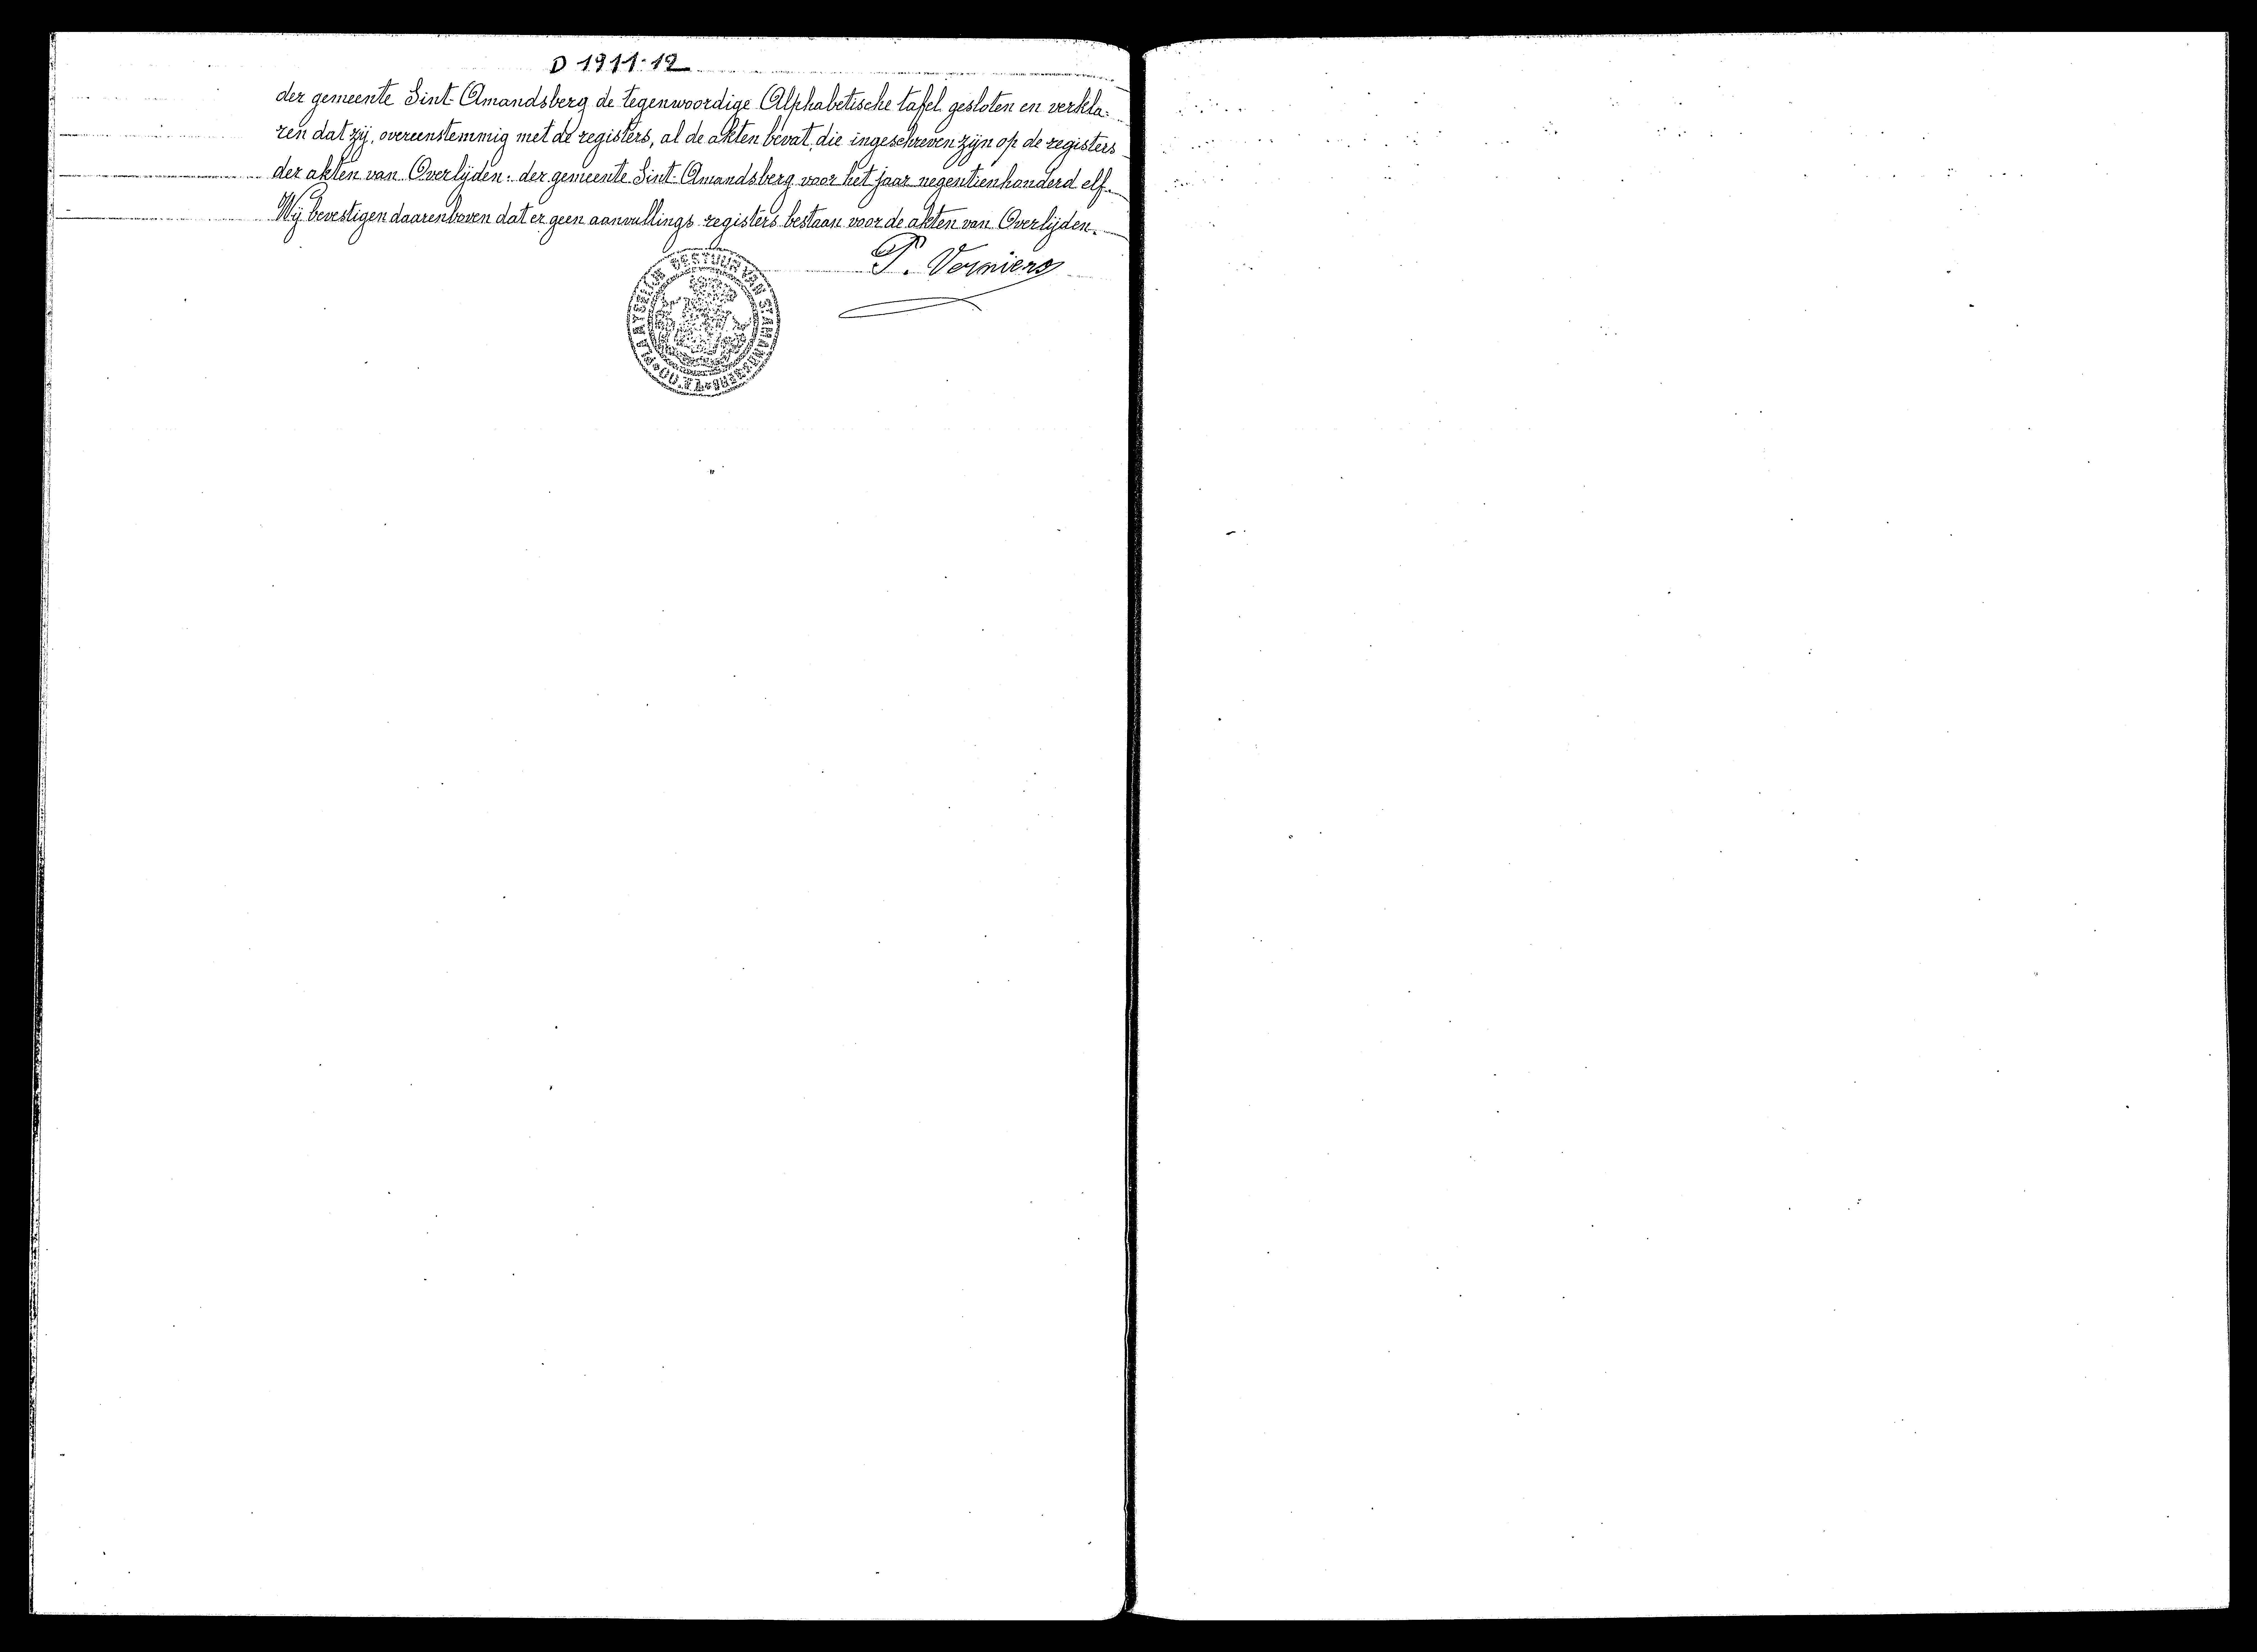 D 1911-12
der gemeente Sint-Amandsberg de tegenwoordige Alphabetische tafel gesloten en verkla-
ren dat zij, overeenstemmig met de registers, al de akten bevat, die ingeschreven zijn op de registers
der akten van Overlijden: der gemeente Sint-Amandsberg voor het jaar negentienhonderd elf.
Wij bevestigen daarenboven dat er geen aanvullings registers bestaan voor de akten van Overlijden.
P. Vermiers
PLAATSELIJK BESTUUR VAN ST AMANDSBERG